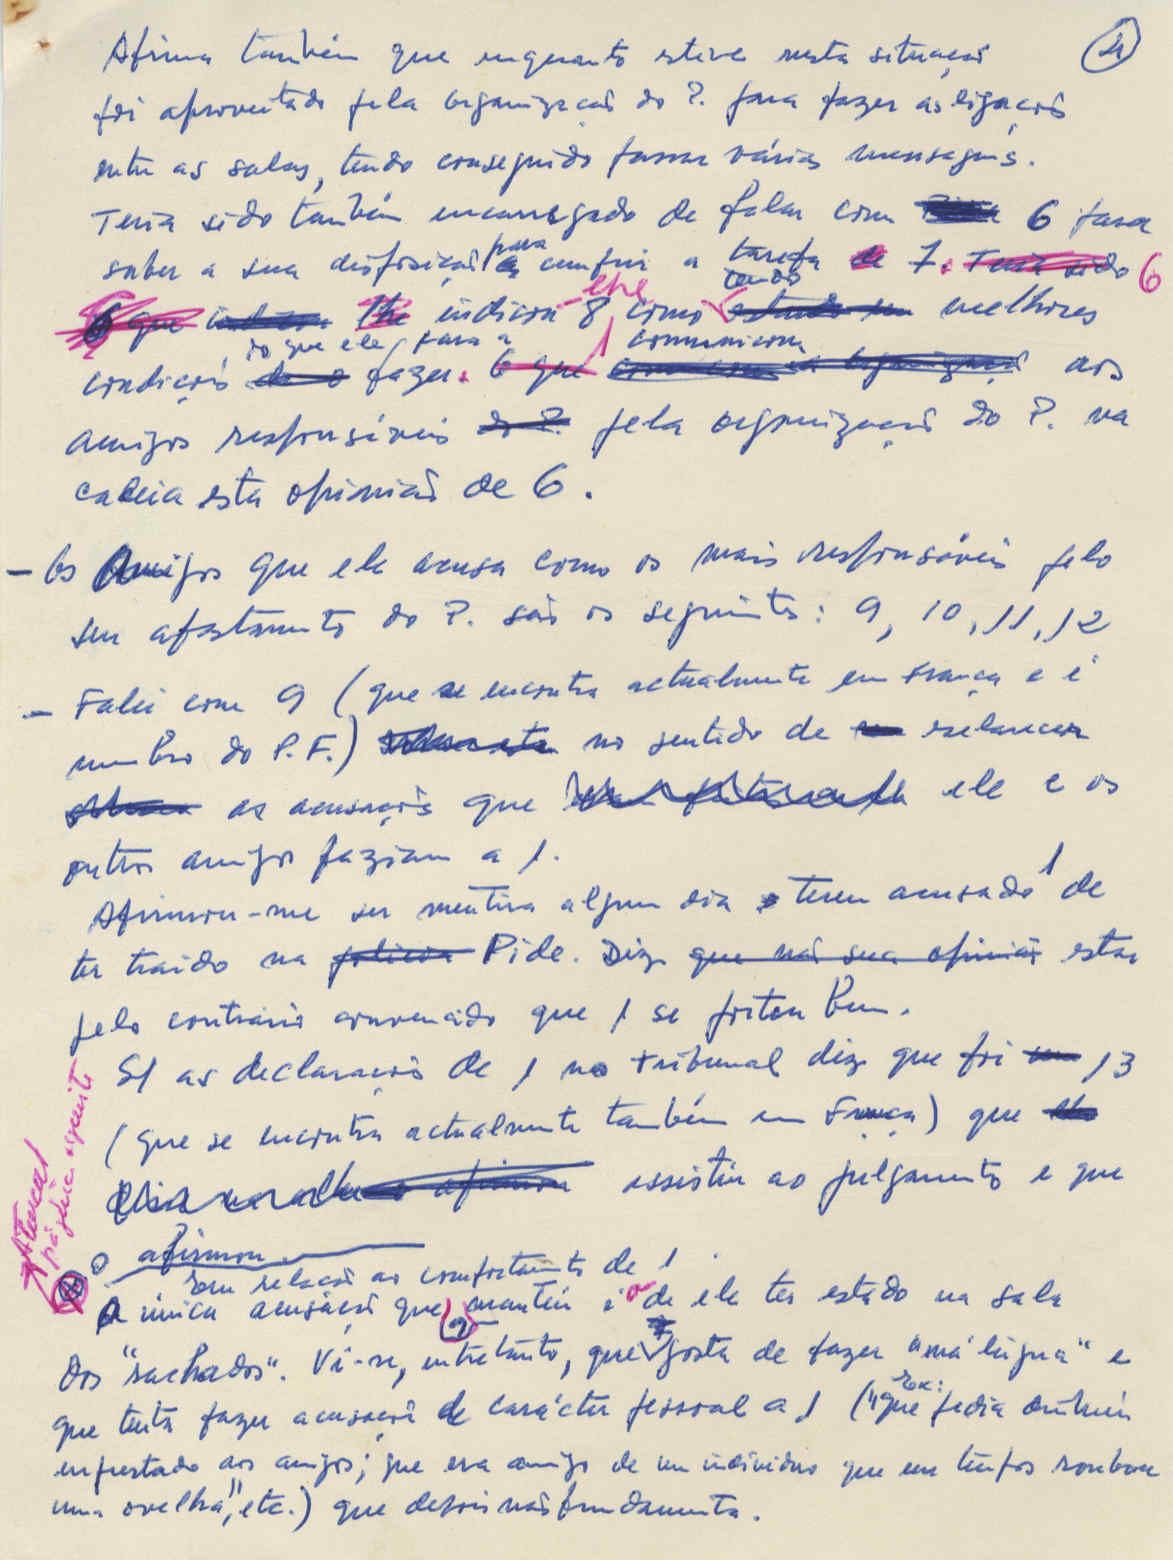 2)
Afirma também que enquanto esteve nesta situação
foi aproveitado pela organização do P. para fazer as ligações
entre as salas, tendo conseguido passar várias mensagens.
Teria sido também encarregado de falar com 6 para
saber a sua disposição para cumprir a tarefa de 7. Teria sido 6
que indicou 8 como tendo melhores
condições do que ele para a fazer. 6 que comunicou aos
amigos responsáveis do P. pela organização do P. na
cadeia esta opinião de 6.
- Os Amigos que ele acusa como os mais responsáveis pelo
seu afastamento do P. são os seguintes: 9, 10, 11, 12
- Falei com 9 (que se encontra actualmente em França e é
membro do P.F.) no sentido de esclarecer
as acusações que ele e os
outros amigos faziam a 1.
Afirmou-me ser mentira algum dia terem acusado 1 de
ter traído na polícia Pide. Diz que na sua opinião estar
pelo contrário convencido que 1 se portou bem.
S/ as declarações de 1 no tribunal diz que foi 13
(que se encontra actualmente também em França) que
assistiu ao julgamento e que
o afirmou.
Atenção página seguinte
em relação ao comportamento de 1
A única acusação que 9 mantém é a de ele ter estado na sala
dos "rachados". Vê-se, entretanto, que gosta de fazer "má língua" e
que tenta fazer acusações de carácter pessoal a 1 (ex: "que pedia dinheiro
emprestado aos amigos; que era amigo de um indivíduo que em tempos roubou
uma ovelha", etc.) que depois não fundamenta.